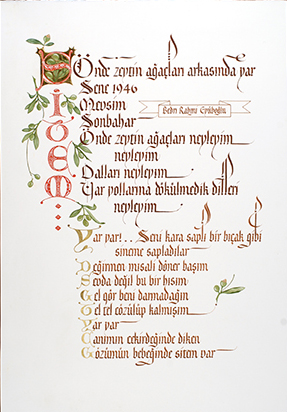 SİTEM...
Önde zeytin ağaçları arkasında yar
Sene 1946
Mevsim
Sonbahar
Bedri Rahmi Eyüboğlu
Önde zeytin ağaçları neyleyim
neyleyim
Dalları neyleyim
Yar yollarına dökülmedik dilleri
neyleyim
Yar yar!... Seni kara saplı bir bıçak gibi
sineme sapladılar
Değirmen misali döner başım
Sevda değil bu bir hışım
Gel gör beni darmadağın
Tel tel çözülüp kalmışım
Yar yar
Canımın çekirdeğinde diken
Gözümün bebeğinde sitem var